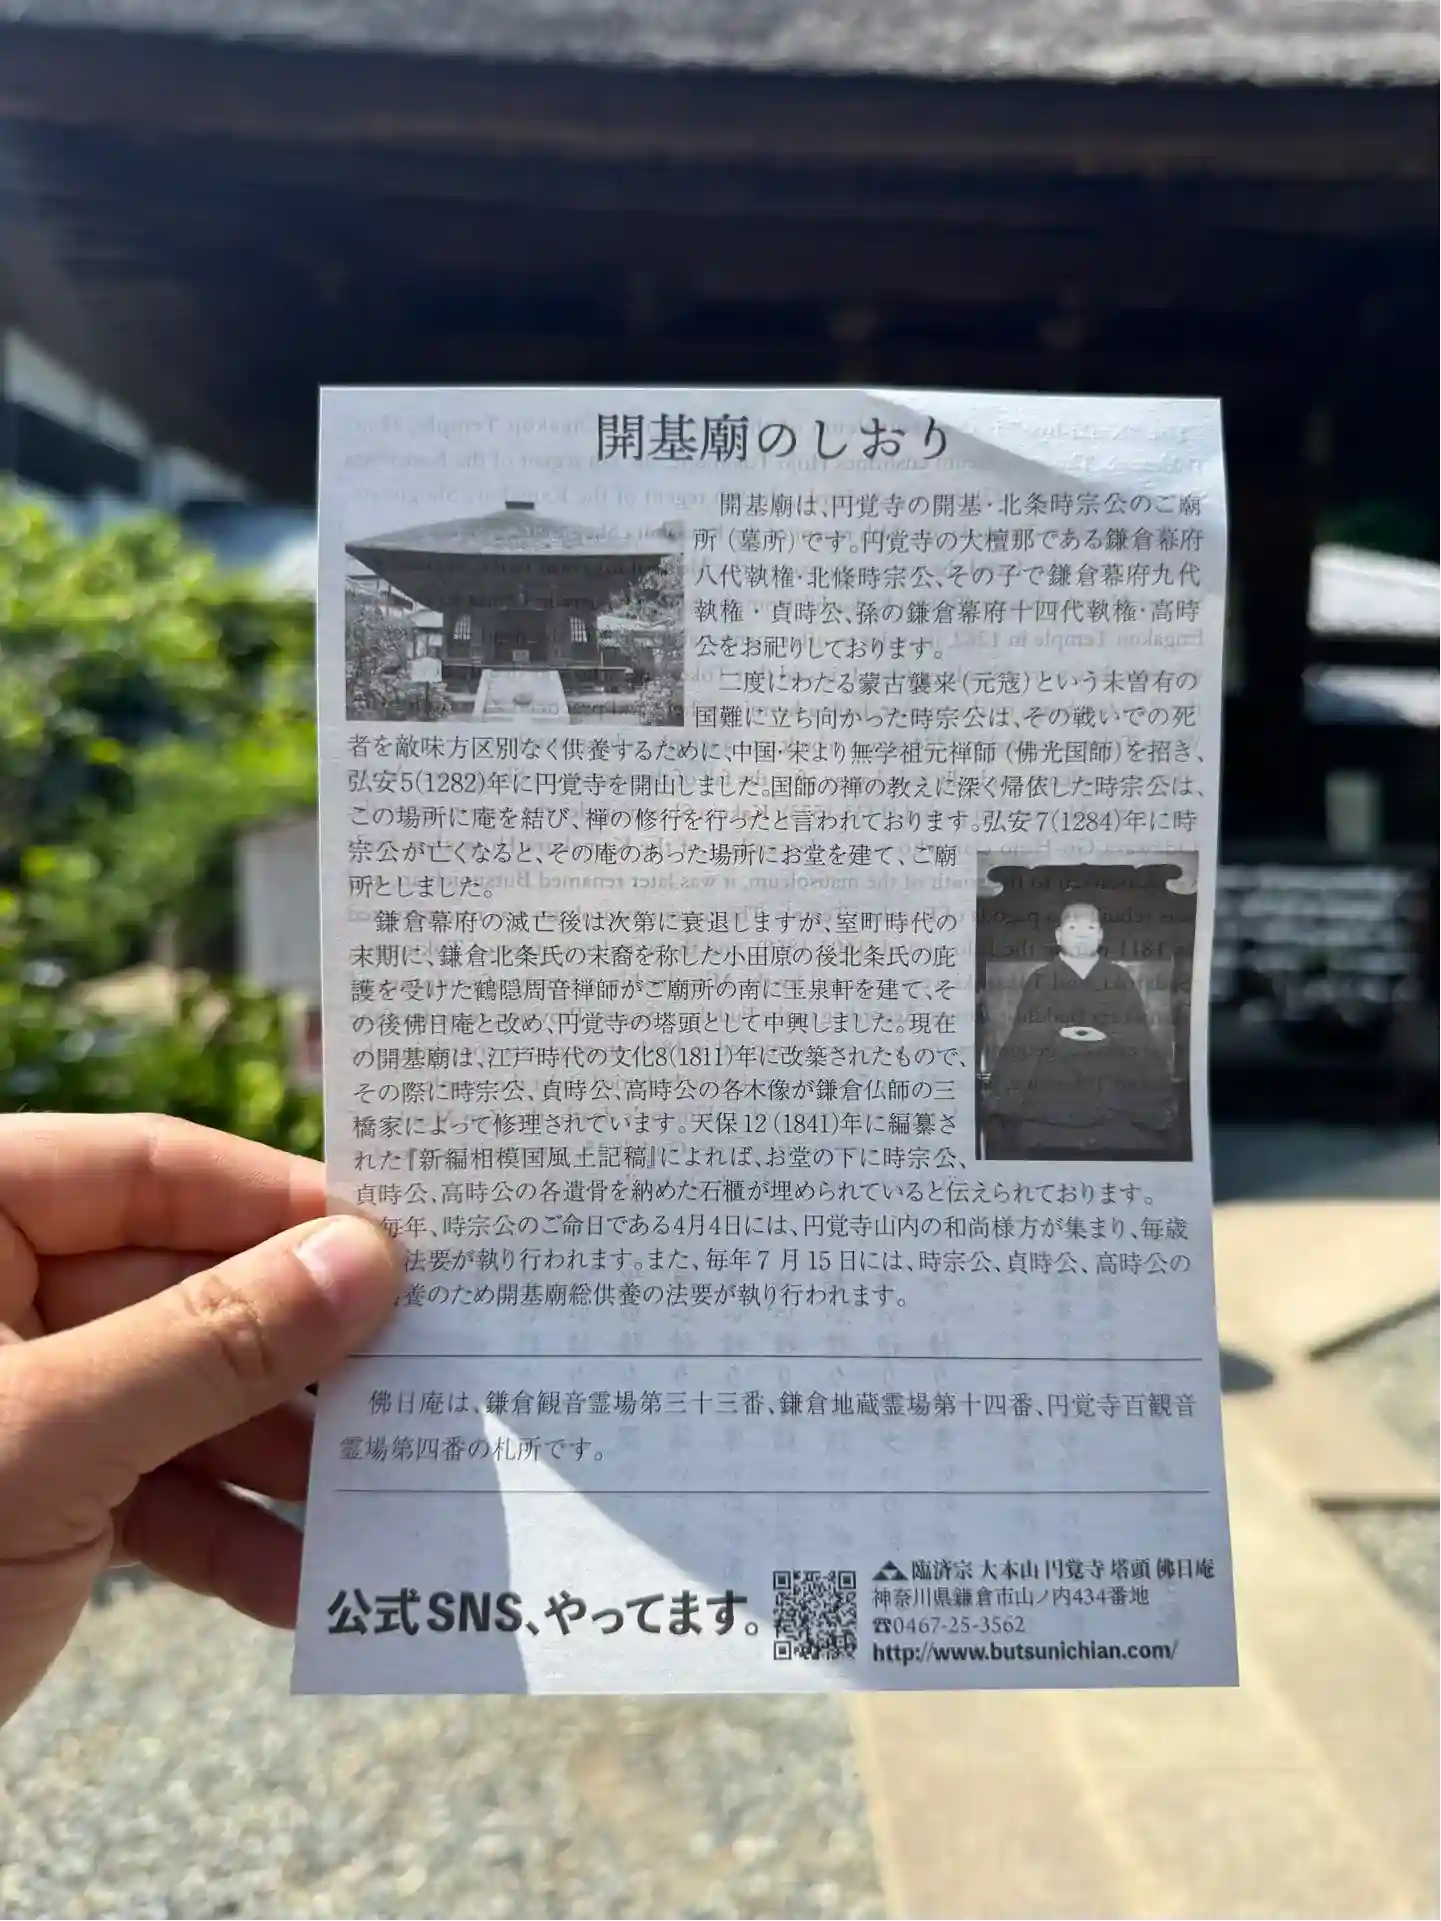 開基廟のしおり
開基廟は、円覚寺の開基・北条時宗公のご廟
所（墓所）です。円覚寺の大檀那である鎌倉幕府
八代執権・北條時宗公、その子で鎌倉幕府九代
執権・貞時公、孫の鎌倉幕府十四代執権・高時
公をお祀りしております。
二度にわたる蒙古襲来（元寇）という未曽有の
国難に立ち向かった時宗公は、その戦いでの死
者を敵味方区別なく供養するために、中国・宋より無学祖元禅師（佛光国師）を招き、
弘安5(1282)年に円覚寺を開山しました。国師の禅の教えに深く帰依した時宗公は、
この場所に庵を結び、禅の修行を行ったと言われております。弘安7(1284)年に時
宗公が亡くなると、その庵のあった場所にお堂を建て、ご廟
所としました。
鎌倉幕府の滅亡後は次第に衰退しますが、室町時代の
末期に、鎌倉北条氏の末裔を称した小田原の後北条氏の庇
護を受けた鶴隠周音禅師がご廟所の南に玉泉軒を建て、そ
の後佛日庵と改め、円覚寺の塔頭として中興しました。現在
の開基廟は、江戸時代の文化8(1811)年に改築されたもので、
その際に時宗公、貞時公、高時公の各木像が鎌倉仏師の三
橋家によって修理されています。天保12(1841)年に編纂さ
れた『新編相模国風土記稿』によれば、お堂の下に時宗公、
貞時公、高時公の各遺骨を納めた石櫃が埋められていると伝えられております。
毎年、時宗公のご命日である4月4日には、円覚寺山内の和尚様方が集まり、毎歳
法要が執り行われます。また、毎年7月15日には、時宗公、貞時公、高時公の
養のため開基廟総供養の法要が執り行われます。
佛日庵は、鎌倉観音霊場第三十三番、鎌倉地蔵霊場第十四番、円覚寺百観音
霊場第四番の札所です。
公式SNS、やってます。
臨済宗 大本山 円覚寺 塔頭 佛日庵
神奈川県鎌倉市山ノ内434番地
☎0467-25-3562
http://www.butsunichian.com/